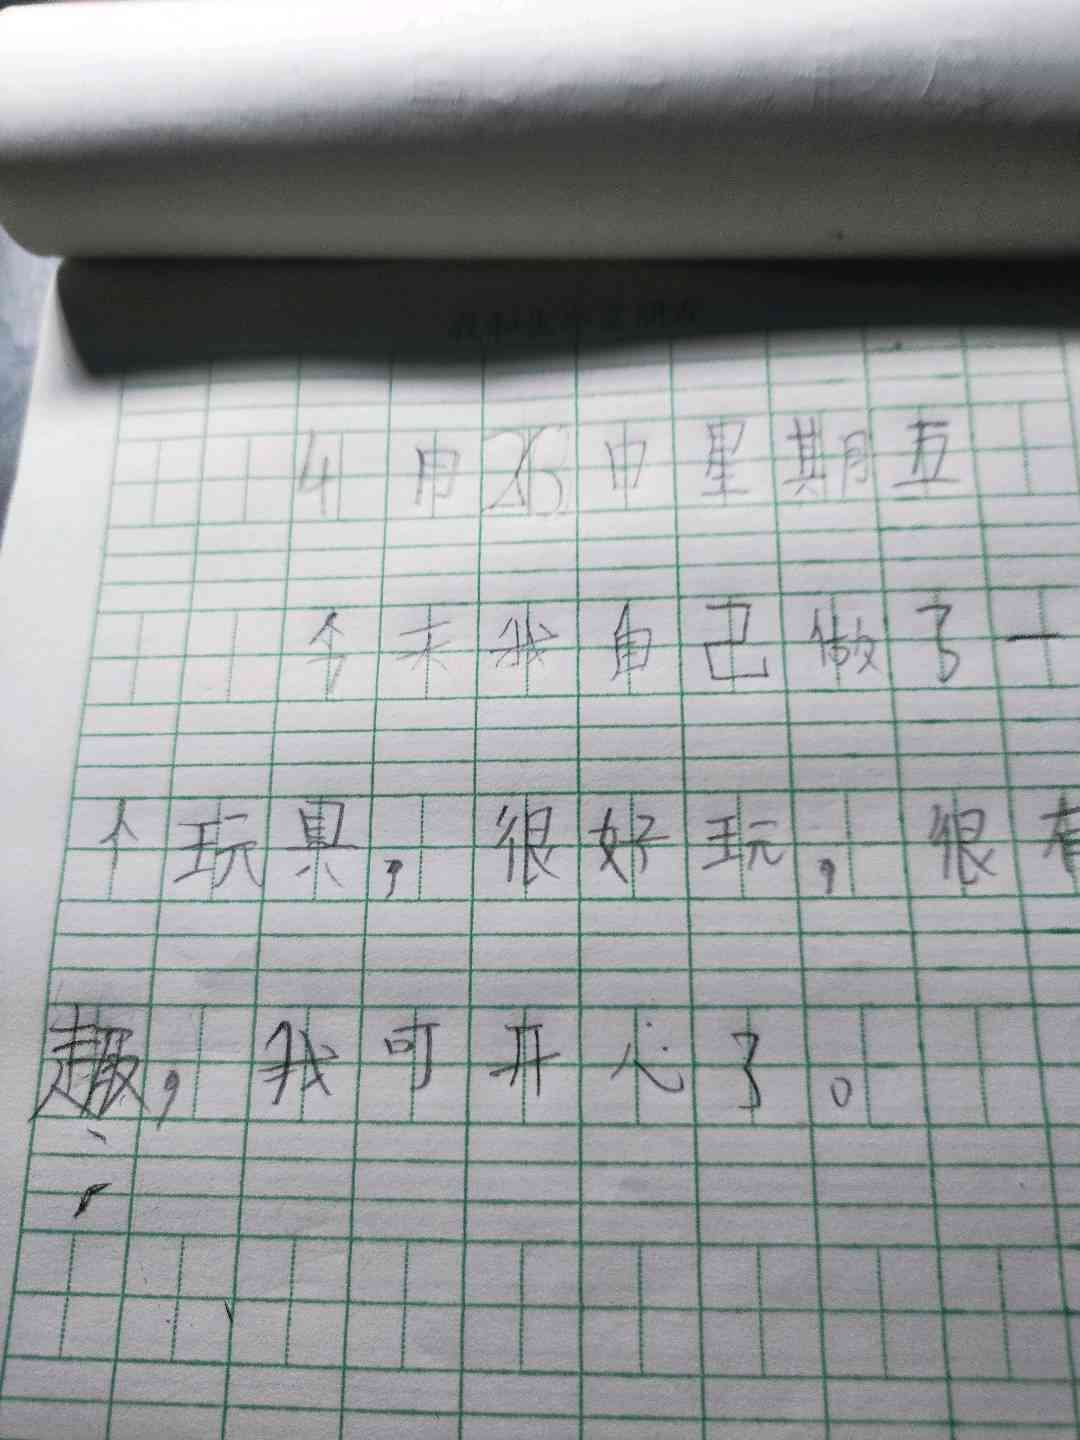 4月26日星期五
今天我自己做了一
个玩具，很好玩，很有
趣，我可开心了。